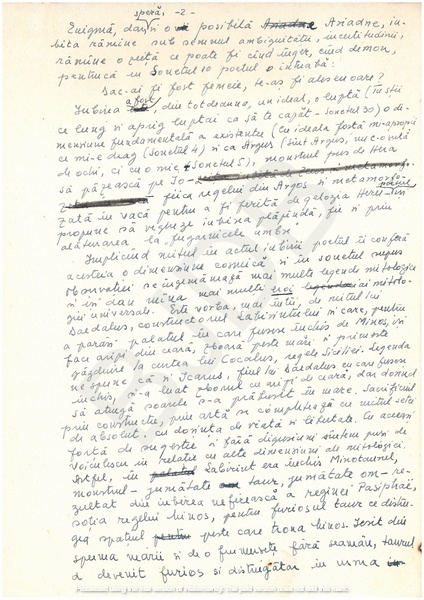 speră, -2-
Enigmă, dar, n o posibilă Ariadne, iu-
bita rămîne sub semnul ambiguității, incertitudinii,
rămîne o fată ce poate fi cînd înger, cînd demon,
pentrucă în Sonetul 10 poetul o întreabă:
Dac-ai fi fost femeie, te-aș fi ales eu oare?
Iubirea a fost din totdeauna, un ideal, o luptă (Tu știi
ce lung și aprig luptai ca să te capăt - Sonetul 30) o di-
mensiune fundamentală a existenței (cu ideala fostă mi-apropii
ce mi-e drag (Sonetul 4) și ca Argus (sînt Argus, nu c-o sută
de ochi, ci cu o mie - Sonetul 5), monstrul pus de Hera
să păzească pe Io -
fiica regelui din Argos și metamorfo-
zată în vacă pentru a fi ferită de gelozia Herei - poetul își
propune să vegheze iubirea plăpîndă, fie și prin
alăturarea la fugarnicele umbre
Implicînd mitul în actul iubirii poetul îi conferă
acesteia o dimensiune cosmică și în sonetul supus
observației se îngemănează mai multe legende mitologice
și își dau mîna mai mulți eroi ai mitolo-
giei universale. Este vorba, mai întîi, de mitul lui
Daedalus, constructorul Labirintului și care, pentru
a părăsi palatul în care fusese închis de Minos, își
face aripi din ceară, zboară peste mări și primește
găzduire la curtea lui Cocalus, regele Siciliei. Legenda
ne spune că și Icarus, fiul lui Daedalus cu care fusese
închis, și-a luat zborul cu aripi de ceară, dar dorind
să atingă soarele s-a prăbușit în mare. Sacrificiul
prin constructie, prin artă se completează cu mitul setei
de absolut, cu dorința de viață și libertate. Cu aceeași
forță de sugestie și fără digresiuni sîntem puși de
Voiculescu în relație cu alte dimensiuni ale mitologiei.
Astfel, în Labirint era închis Minotaurul,
monstrul - jumătate taur, jumătate om - re-
zultat din iubirea nefirească a reginei Pasiphaë,
soția regelui Minos, pentru furiosul taur ce distru-
gea spațiul peste care trona Minos. Ieșit din
spuma mării și de o frumusețe fără seamăn, taurul
a devenit furios și distrugător în urma